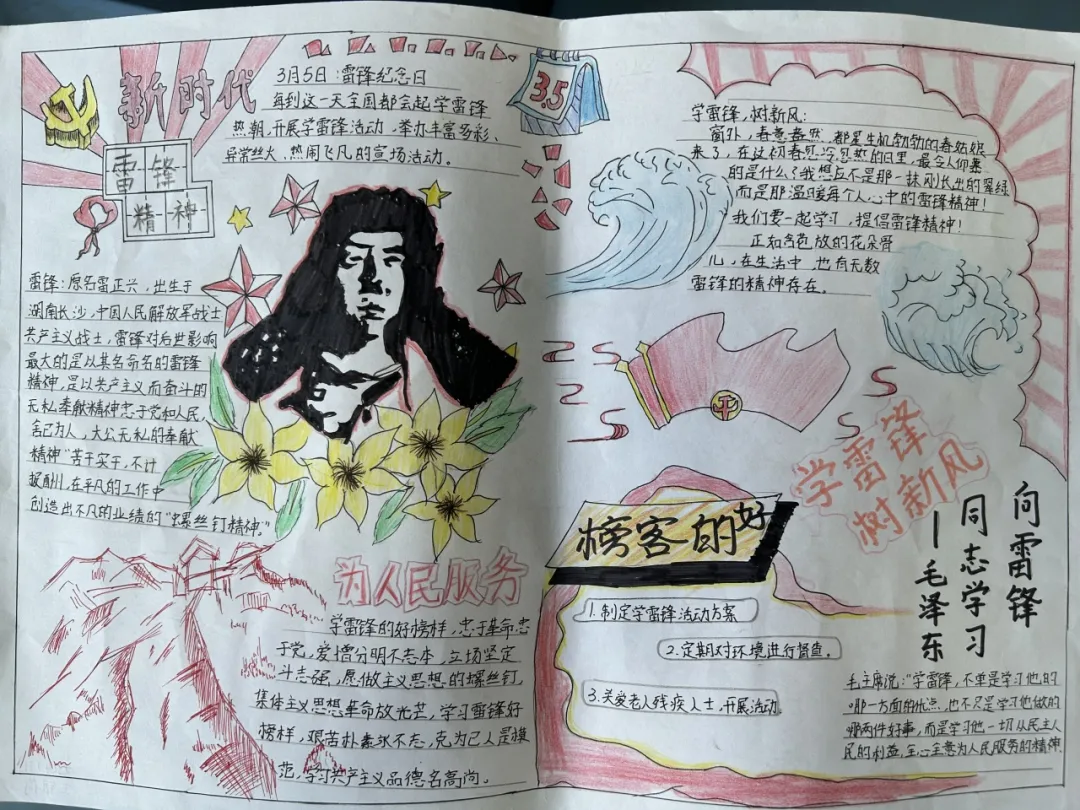 新时代
雷锋
精神
3月5日:雷锋纪念日
每到这一天全国都会起学雷锋
热朝,开展学雷锋活动,举办丰富多彩、
异常丝大、热闹飞凡的宣场活动。
雷锋:原名雷正兴,出生于
湖南长沙,中国人民解放军战士
共产主义战士,雷锋对后世影响
最大的是以其名命名的雷锋
精神,是以共产主义而奋斗的
无私奉献精神忠于党和人民,
舍己为人,大公无私的奉献
精神"苦干实干,不计
报酬,在平凡的工作中
创造出不凡的业绩的"螺丝钉精神"
为人民服务
学雷锋的好榜样,忠于革命忠
于党,爱憎分明不志本,立场坚定
斗志强,愿做主义思想的螺丝钉,
集体主义思想革命放光芒,学习雷锋好
榜样,艰苦朴素永不志,克为己人是模
范,学习共产主义品德名高尚。
3.5
学雷锋,树新风:
窗外,春意盎然,都是生机勃勃的春姑娘
来了,在这初春忽冷忽热的日里,最令人仰慕
的是什么?我想应不是那一抹刚长出的翠绿
而是那温暖每个人心中的雷锋精神!
我们要一起学习,提倡雷锋精神!
正如含苞放的花朵骨
儿,在生活中,也有无数
雷锋的精神存在。
学雷锋
树新风
榜客的好
1.制定学雷锋活动方案
2.定期对环境进行督查。
3.关爱老人残疾人士,开展活动
向雷锋
同志学习
—毛泽东
毛主席说:"学雷锋,不单是学习他的
哪一方面的优点,也不只是学习他做的
哪两件好事,而是学习他一切从民主人
民的利益,全心全意为人民服务的精神